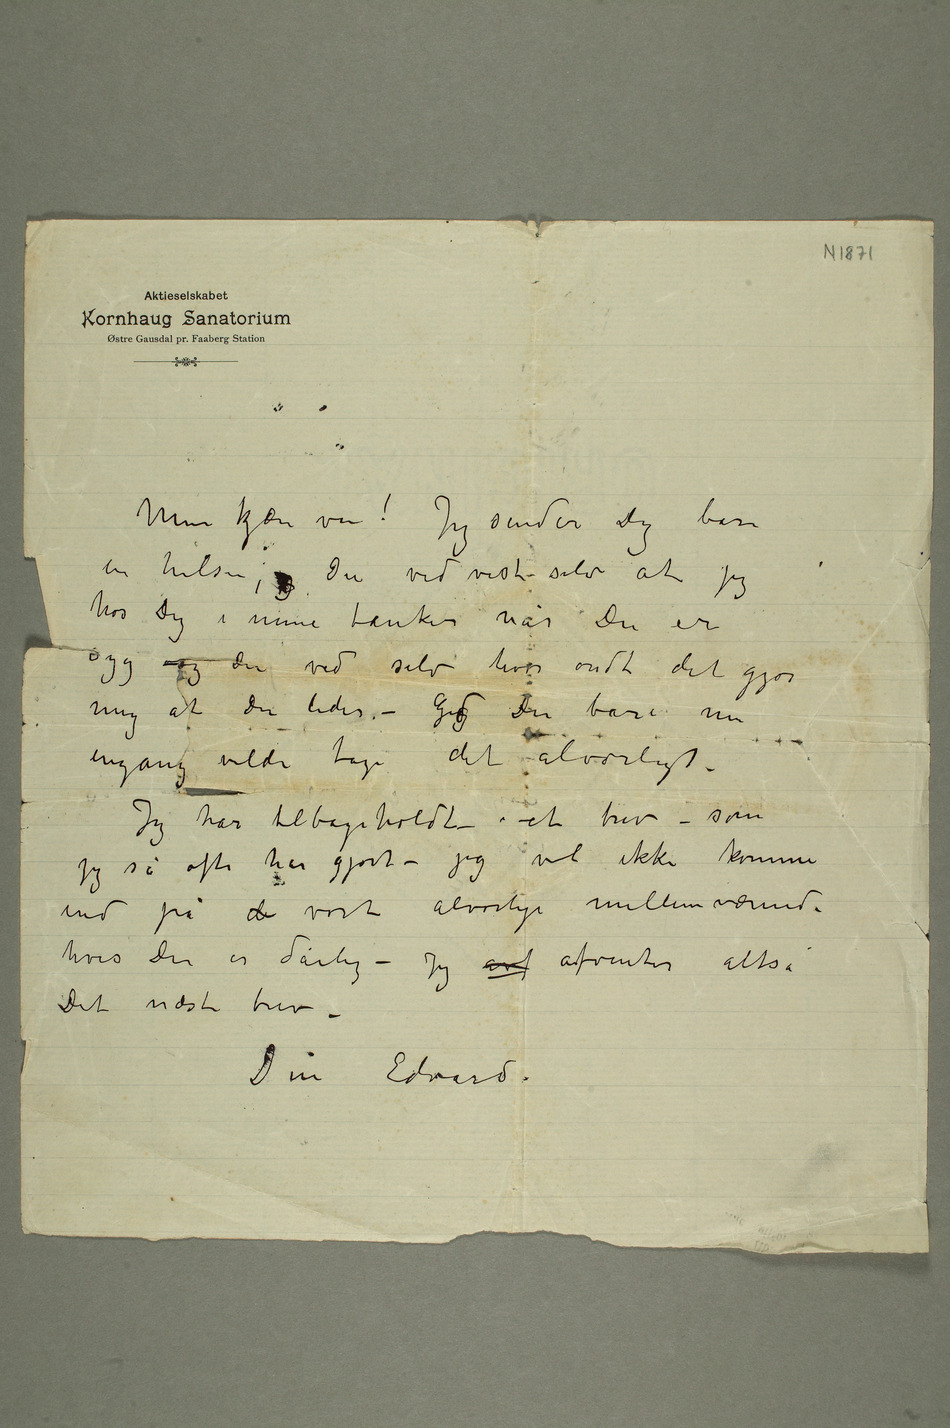 N1871
Aktieselskabet
Kornhaug Sanatorium
Østre Gausdal pr. Faaberg Station
Min kjære ven! Jeg sender Dig bare
en hilsen; Du ved vist selv at jeg
hos Dig i mine tanker når Du er
syg og du ved selv hvor ondt det gjør
mig at Du lider. – Gid Du bare nu
engang vilde tage det alvorligt –
Jeg har tilbageholdt – et brev – som
jeg så ofte har gjort – jeg vil ikke komme
ind på de vort alvorlige mellemværende
hvis Du er dårlig – Jeg avf afventer altså
Det næste brev –
Din Edvard.